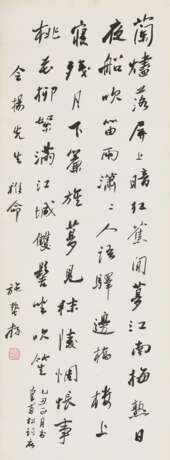 蘭燼落屏上暗紅蕉閒夢江南梅熟日
夜船吹笛雨瀟〻人語驛邊橋樓上
寢殘月下簾旌夢見秣陵惆悵事
桃花柳絮滿江城雙髻坐吹笙
令揚先生雅命
施蟄存
乙丑正月書
皇甫松詞